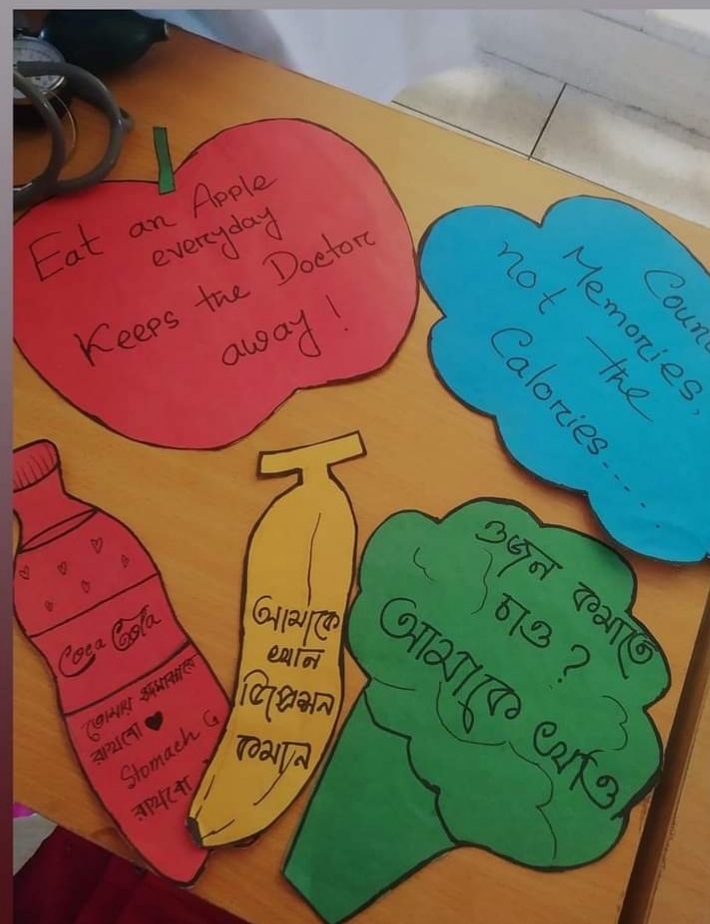 Eat an Apple
everyday
Keeps the Doctor
away!
Count
Memories,
not the
Calories.....
Coca Cola
তোমায় হৃদমাঝারে
রাখবো ♥
Stomach এ
রাখবো
আমাকে
খান
ডিপ্রেশন
কমান
ওজন কমাতে
চাও ?
আমাকে খাও